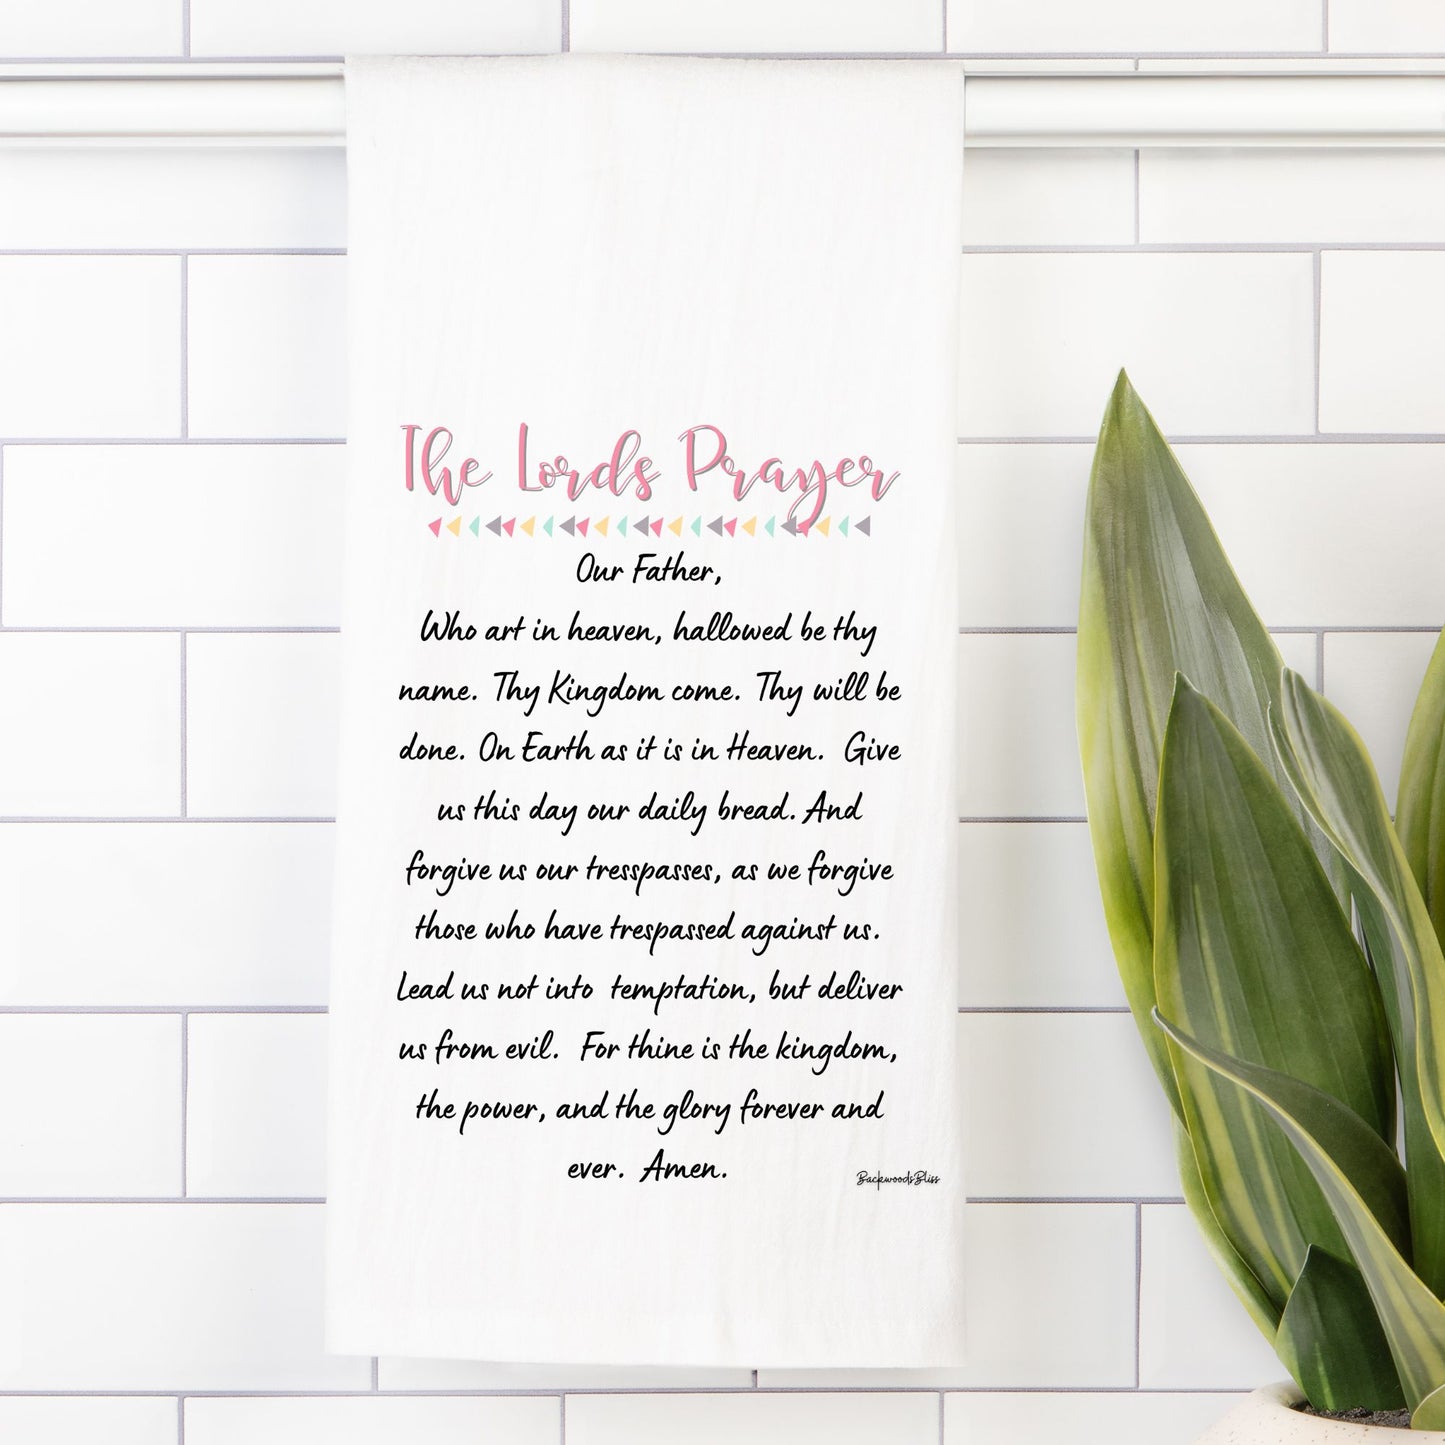 The Lords Prayer
Our Father,
Who art in heaven, hallowed be thy
name. Thy Kingdom come. Thy will be
done. On Earth as it is in Heaven. Give
us this day our daily bread. And
forgive us our tresspasses, as we forgive
those who have trespassed against us.
Lead us not into temptation, but deliver
us from evil. For thine is the kingdom,
the power, and the glory forever and
ever. Amen.
BackwoodsBliss